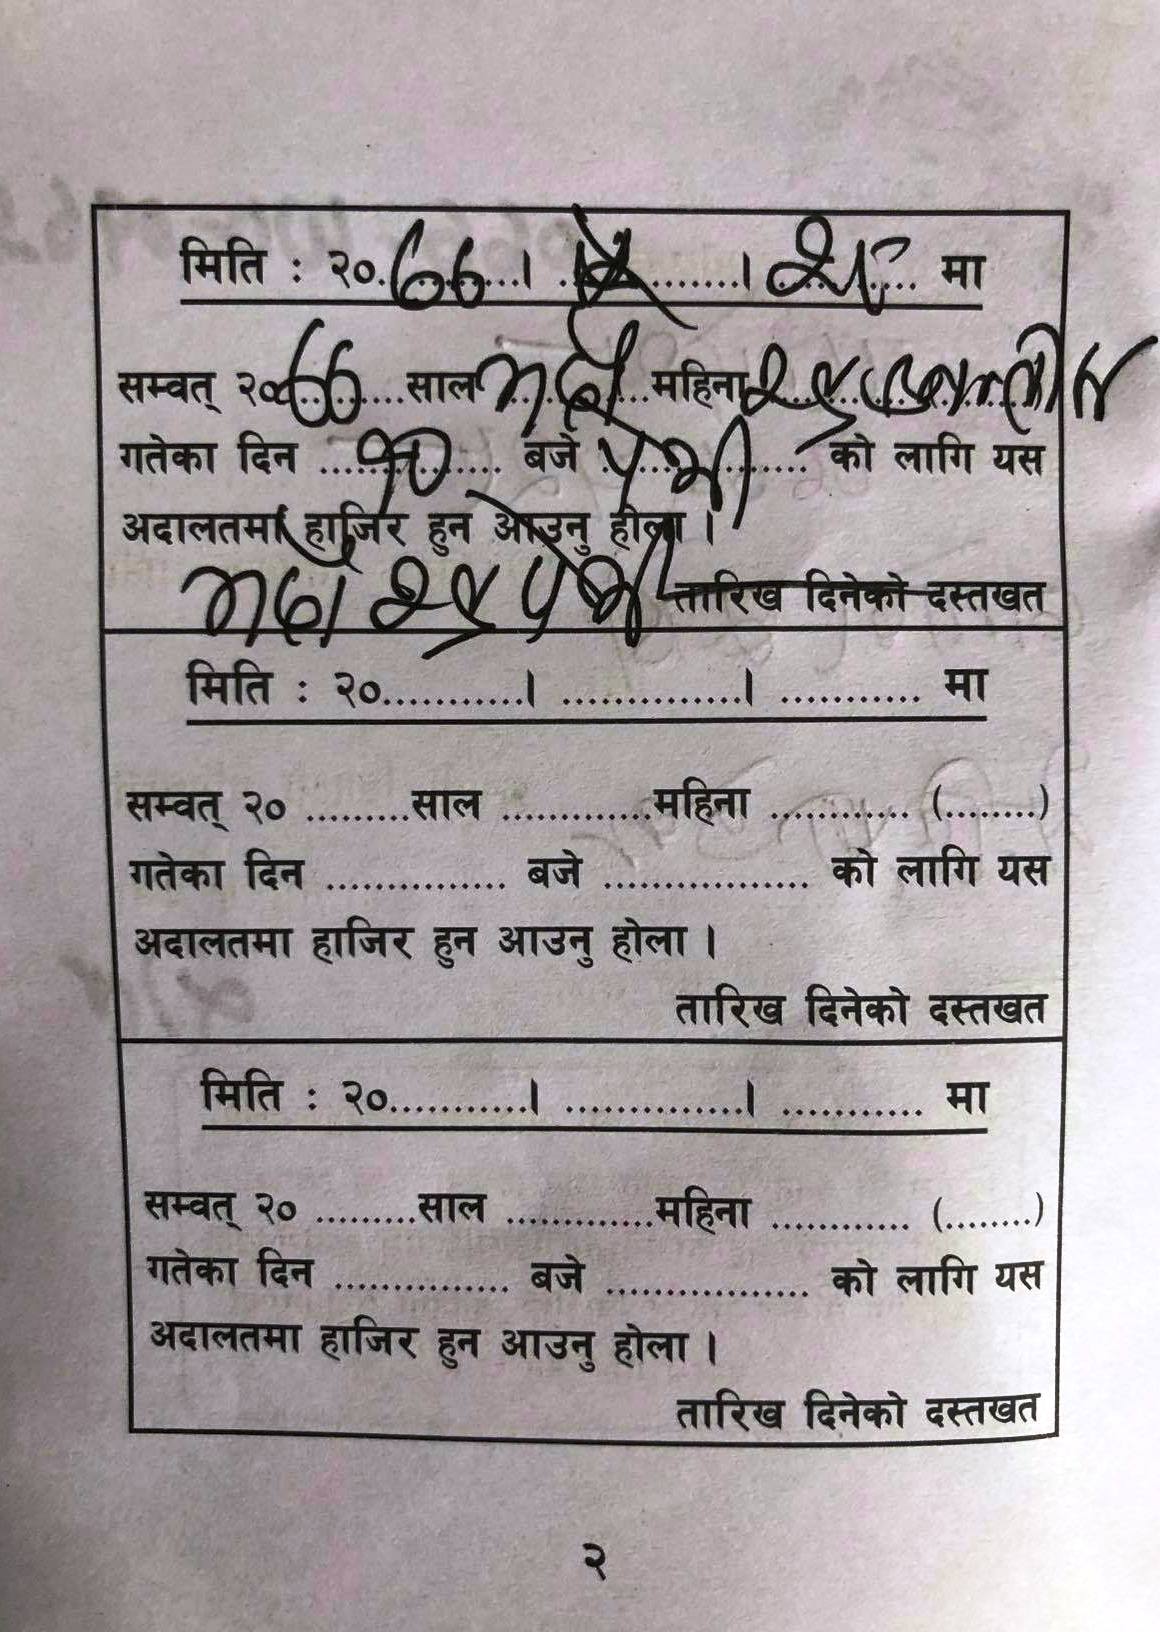 मिति : २०७७ । । मा
सम्वत् २०७७ साल भदौ महिना २९
गतेका दिन १० बजे पेशी को लागि यस
अदालतमा हाजिर हुन आउनु होला ।
भदौ २९ पेशी तारिख दिनेको दस्तखत
मिति : २०...........। ..............। ........... मा
सम्वत् २० .........साल .............महिना ............ (........)
गतेका दिन ................ बजे .................. को लागि यस
अदालतमा हाजिर हुन आउनु होला ।
तारिख दिनेको दस्तखत
मिति : २०...........। ..............। ........... मा
सम्वत् २० .........साल .............महिना ............ (........)
गतेका दिन ................ बजे .................. को लागि यस
अदालतमा हाजिर हुन आउनु होला ।
तारिख दिनेको दस्तखत
२